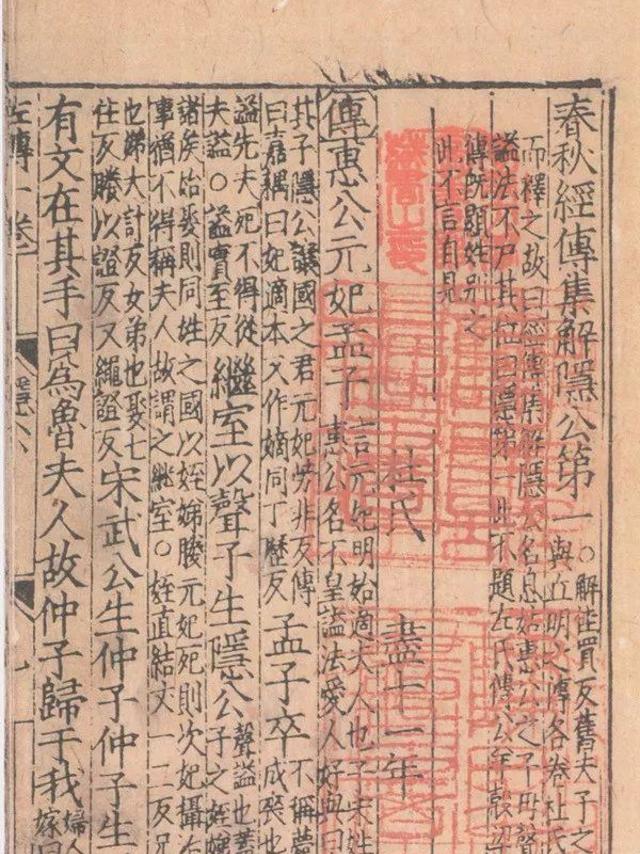 春秋經傳集解隱公第一
○解佳買反舊夫子之
與丘明之傳各卷杜氏
而釋之故曰經傳集解隱公名息姑惠公之子母聲
謚法不尸其位曰隱第一此不題左氏傳公羊穀梁
傳既顯姓別之
此不言自見
杜氏 盡十一年
傳惠公元妃孟子
言元妃明始適夫人也子宋姓
惠公名不皇謚法愛人好與曰
其子隱公讓國之君元妃芳非反傳
曰嘉耦曰妃適本又作嫡同丁歷反
孟子卒
不稱薨
成喪也
謚先夫死不得從
夫謚○謚實至反
繼室以聲子生隱公
聲謚也蓋
子之姪娣
諸侯始娶則同姓之國以姪娣媵元妃死則次妃攝治
事猶不得稱夫人故謂之繼室○姪直結反一二反兄
也娣大計反女弟也娶七
住反媵以證反又繩證反
宋武公生仲子仲子生
有文在其手曰為魯夫人故仲子歸于我
婦人
嫁曰
左傳一卷